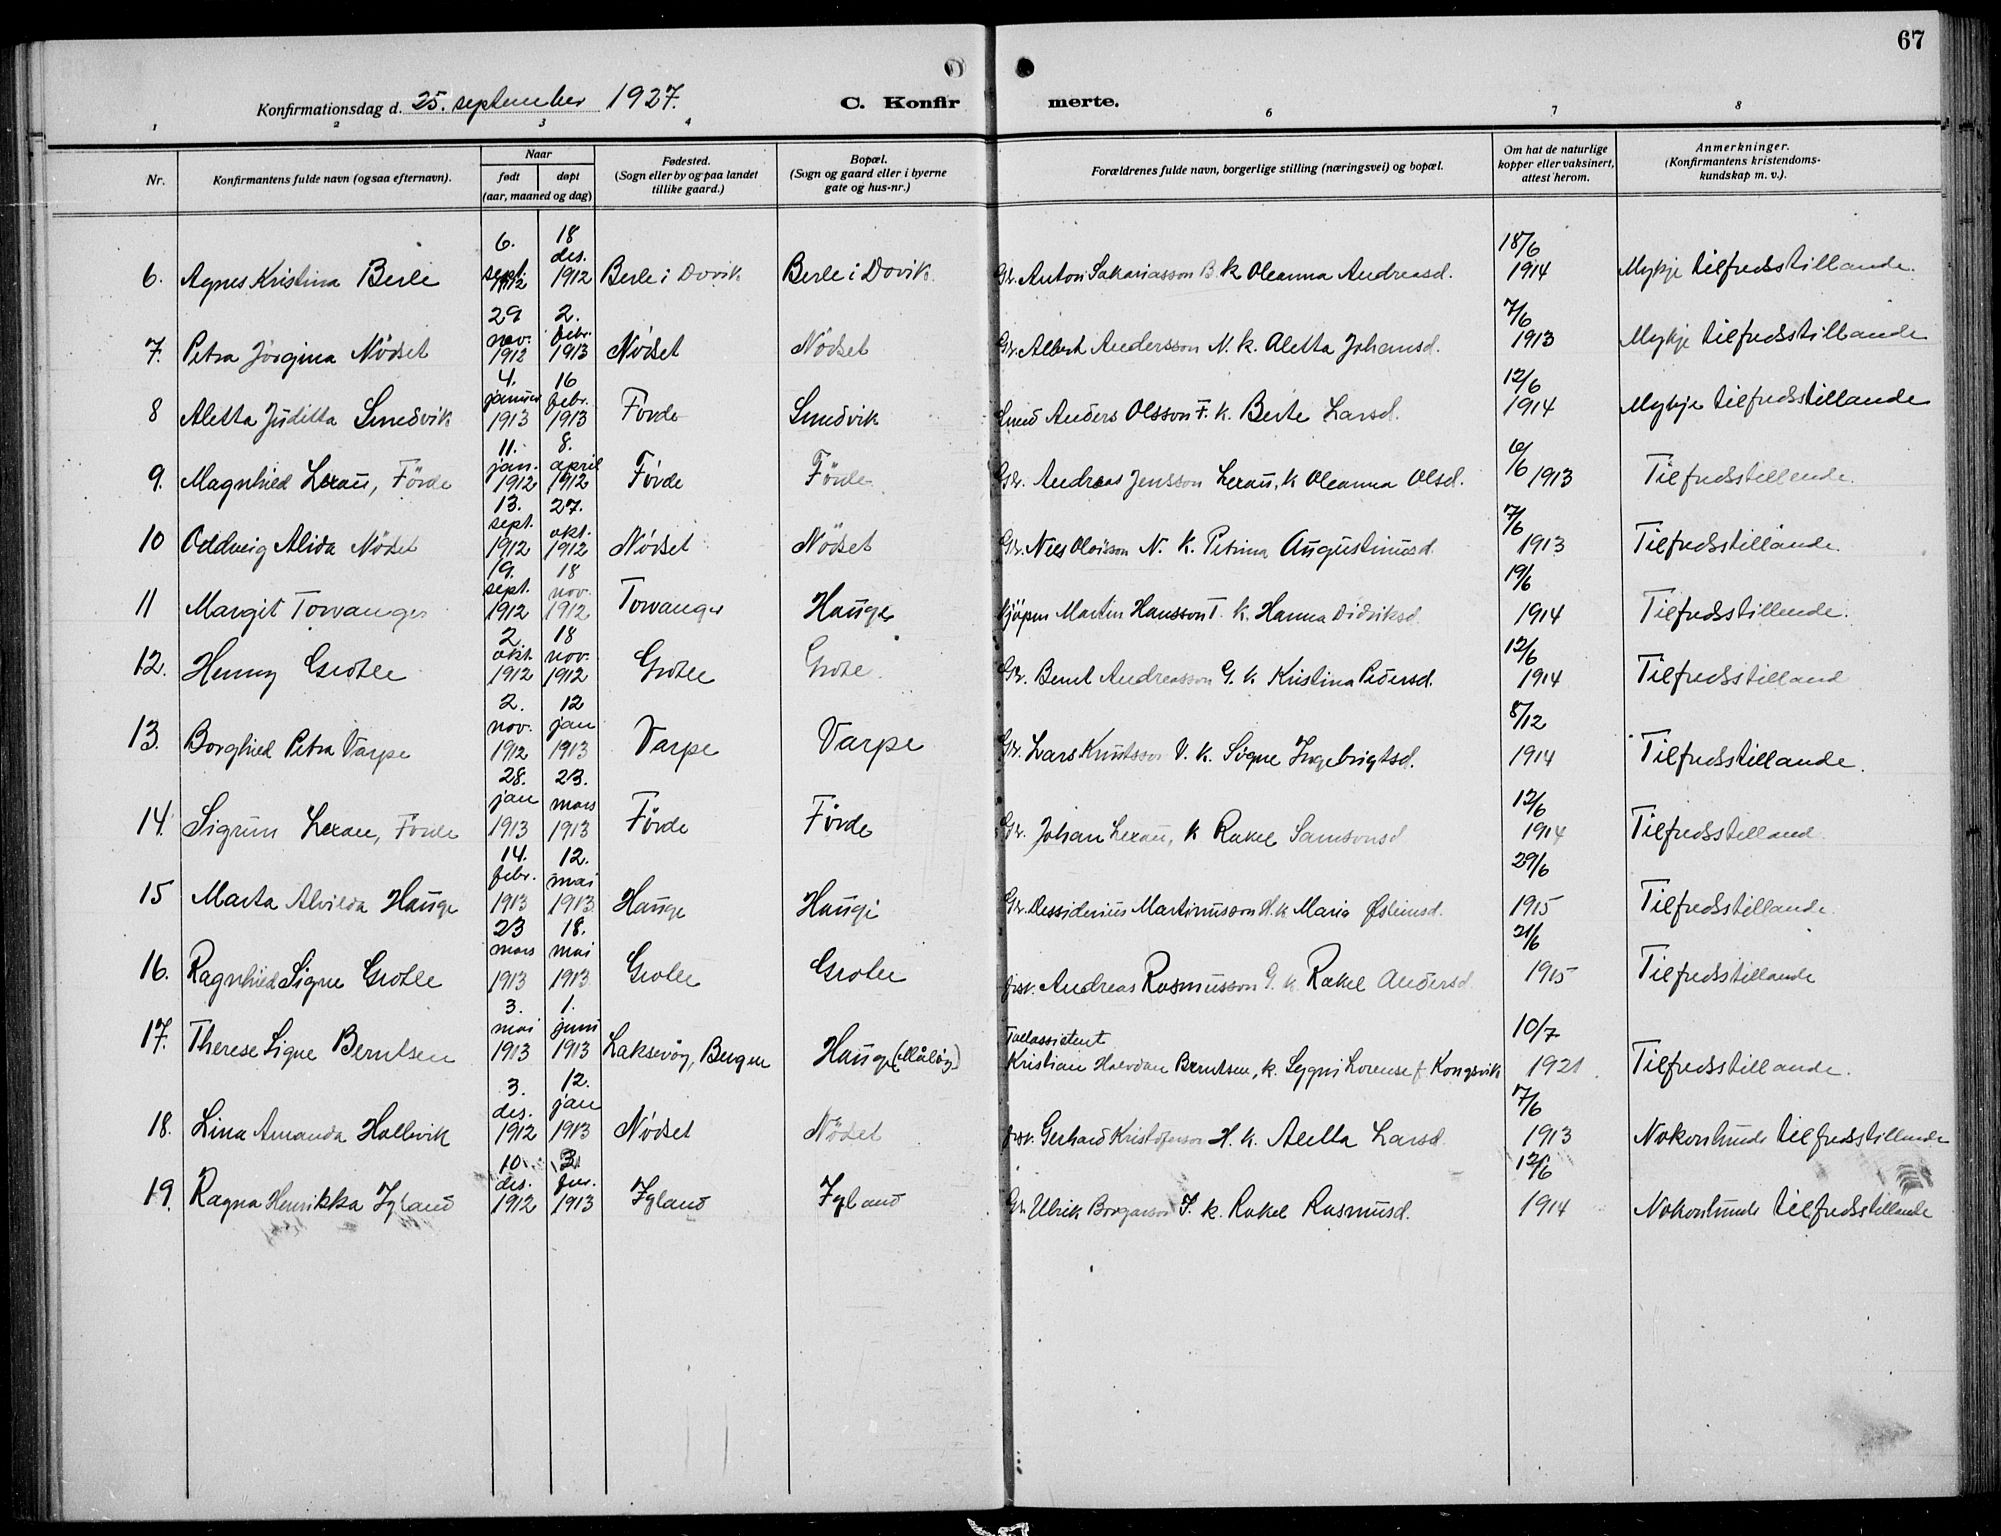 67
Konfirmationsdag d. 25. september 1927. C. Konfir merte.
1 2 3 4 6 7 8
Nr. Konfirmantens fulde navn (ogsaa efternavn). Naar født døpt (aar, maaned og dag) Fødested. (Sogn eller by og paa landet tillike gaard.) Bopæl. (Sogn og gaard eller i byerne gate og hus-nr.) Forældrenes fulde navn, borgerlige stilling (næringsvei) og bopæl. Om hat de naturlige kopper eller vaksinert, attest herom. Anmerkninger. (Konfirmantens kristendoms-kundskap m. v.).
6. Agnes Kristina Berle 6. sept. 1912 18 des. 1912 Berle i Davik Berle i Davik Gbr. Anton Sakariasson B. k Oleanna Andreasd. 18/6 1914 Mykje tilfredsstillande.
7. Petra Jørgina Nødset 29 nov. 1912 2. febr. 1913 Nødset Nødset Gbr. Albert Andersson N. k. Aletta Johansd. 7/6 1913 Mykje tilfredsstillande
8 Aletta Juditta Smedvik 4. januar 1913 16 febr. 1913 Førde Smedvik Smed Anders Olsson F. k. Berte Larsd. 12/6 1914 Mykje tilfredsstillande
9. Magnhild Lexau, Förde 11. jan. 1912 8. april 1912 Førde Förde Gbr. Andreas Jensson Lexau, k Oleanna Olsd. 6/6 1913 Tilfredsstillende.
10 Oddveig Alida Nødset 13. sept. 1912 27. okt. 1912 Nødset Nødset Gbr. Nils Olaisson N. k. Petrina Augustinusd. 7/6 1913 Tilfredsstillande.
11 Margit Torvanger 19. sept. 1912 18 nov. 1912 Torvanger Hauge Kjøpm Martin Hansson T. k. Hanna Didriksd. 19/6 1914 Tilfredsstillende.
12. Henny Grotle 2. okt. 1912 18 nov. 1912 Grotle Grotle Gbr. Bernt Andreasson G. k. Kristina Pedersd. 12/6 1914 Tilfredsstilland
13. Borghild Petra Varpe 2. nov. 1912 12 jan 1913 Varpe Varpe Gbr. Lars Knutsson V. k. Signe Ingebrigtsd. 8/12 1914 Tilfredsstillande.
14. Sigrun Lexau, Förde 28. jan 1913 23. mars 1913 Førde Førde Gbr. Johan Lexau, k Rakel Samsonsd 12/6 1914 Tilfredsstilland.
15 Marta Alvilda Hauge 14. febr. 1913 12. mai 1913 Hauge Hauge Gbr. Dessiderius Martinusson H. k Maria Østeinsd. 29/6 1915 Tilfredsstillande.
16. Ragnhild Signe Grotle 23 mars 1913 18. mai 1913 Grotle Grotle fisk. Andreas Rasmusson G. k. Rakel Andersd 21/6 1915 Tilfredsstillande
17. Therese Signe Berntsen 3. mai 1913 1. juni 1913 Laksevåg, Bergen Hauge (Måløy) Tollassistent
Kristian Halvdan Berntsen, k. Sygni Lorense f. Kongsvik 10/7 1921 Tilfredsstillande.
18. Lina Amanda Hallvik 3. des. 1912 12. jan 1913 Nødset Nødset fisk. Gerhard Kristoferson H. k. Aletta Larsd. 7/6 1913 Nokonlunde tilfredsstillande
19. Ragna Henrikka Igland 10. des. 1912 3. 1913 Igland Igland Gbr. Ulrik Borgarson I. k. Rakel Rasmusd. 12/6 1914 Nokonlunde tilfredsstillande